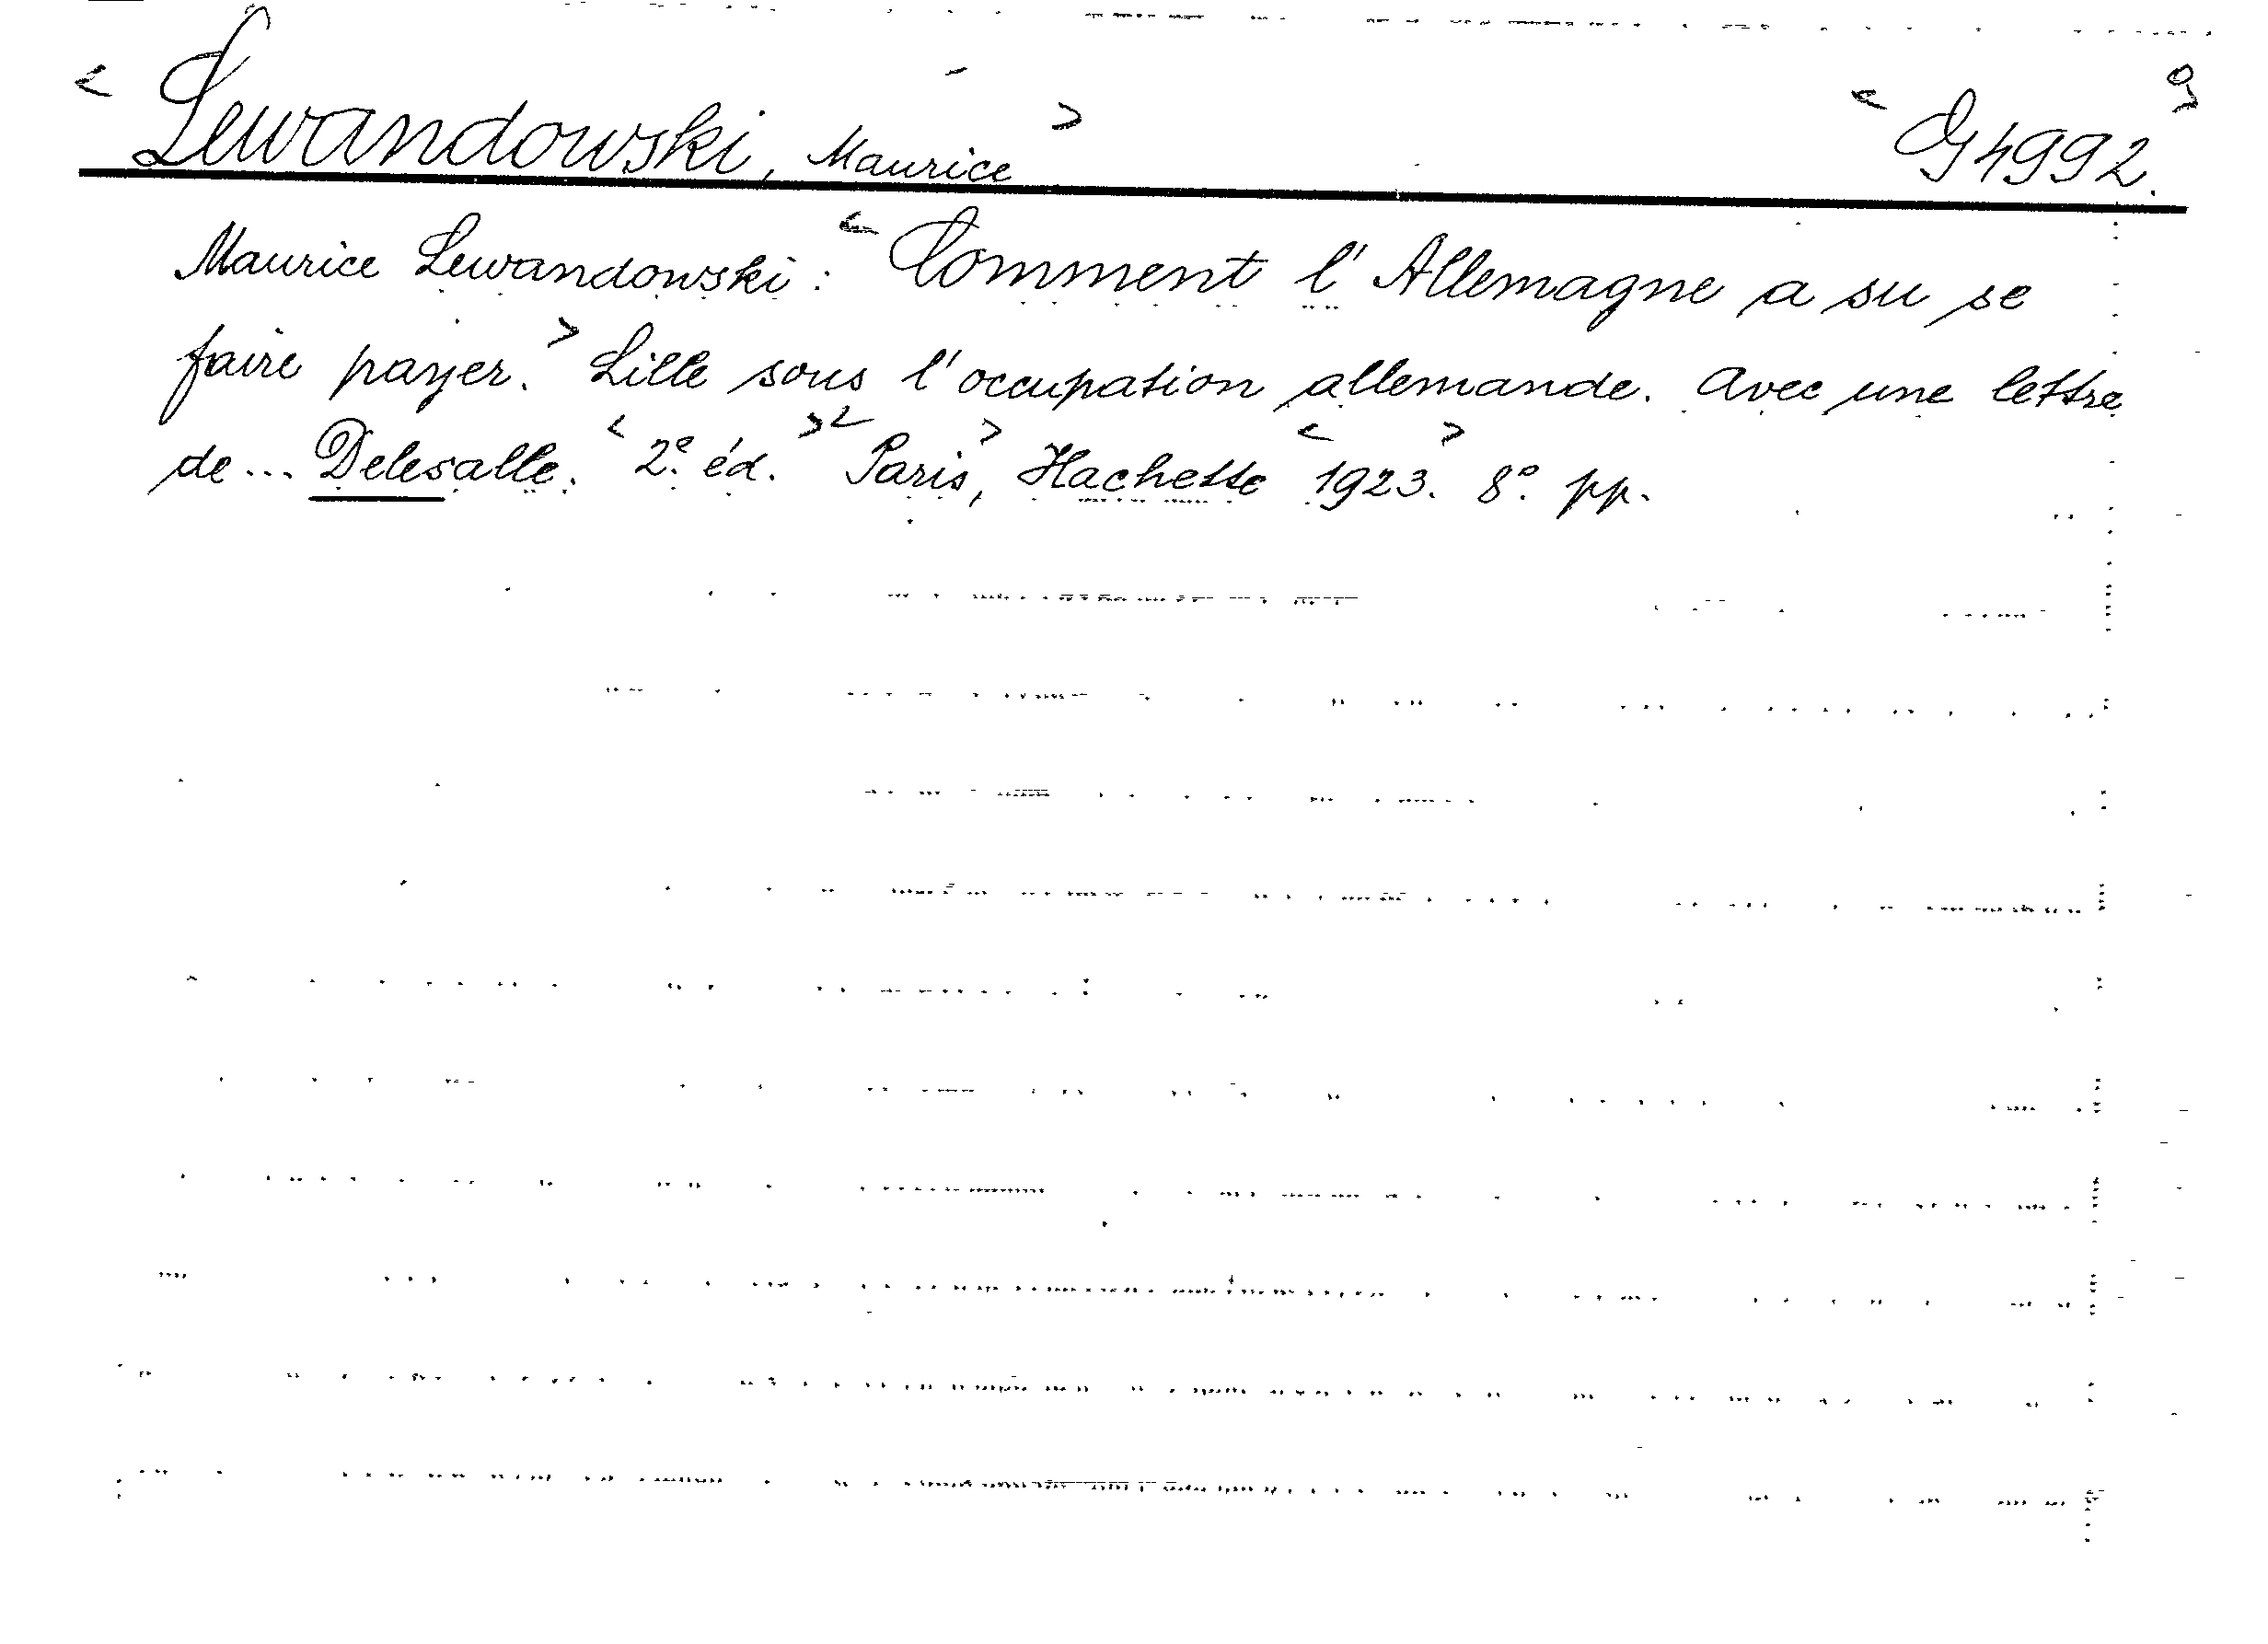 < Lewandowski, Maurice > < G 4992. >
Maurice Lewandowski: < Comment l'Allemagne a su se
faire payer. > Lille sous l'occupation allemande. Avec une lettre
de... Delesalle. < 2e. éd. > < Paris >, Hachette < 1923. > 8°. pp.